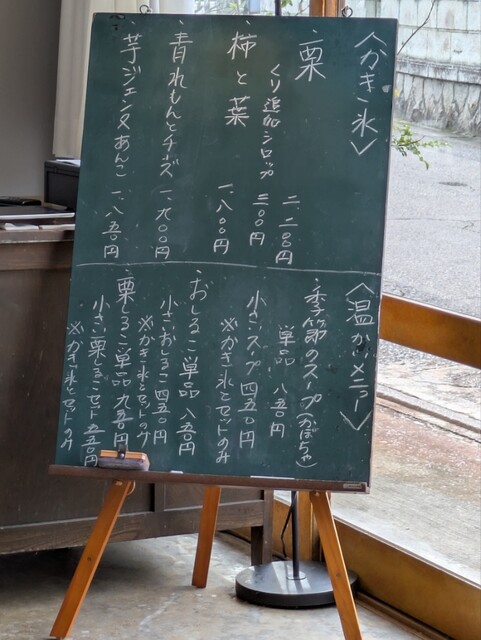 〈かき氷〉
・栗 二、二〇〇円
くり追加シロップ 三〇〇円
・柿と葉 一、八〇〇円
・青れもんとチーズ 一、九〇〇円
・芋ジェンヌあんこ 一、八五〇円
〈温かいメニュー〉
・季節のスープ(かぼちゃ)
単品 八五〇円
小さいスープ 四五〇円
※かき氷とセットのみ
・おしるこ 単品 八五〇円
小さいおしるこ 四五〇円
※かき氷とセットのみ
・栗しるこ 単品 九五〇円
小さい栗しるこセット 五五〇円
※かき氷とセットのみ